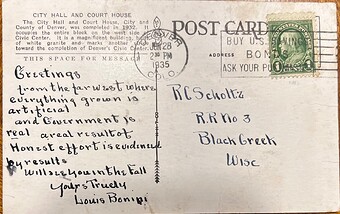 CITY HALL AND COURT HOUSE
The City Hall and Court House, City and
County of Denver, was completed in 1932. It
occupies the entire block on the west side
Civic Center. It is a magnificent building,
of white granite and marks another
toward the completion of Denver's Civic Center.
THIS SPACE FOR MESSAGE
POST CARD
ADDRESS
28
PM
1935
COLO.
BUY U.S.
BON
ASK YOUR PO
1 CENT 1
Greetings
from the far west where
everything grown is
artificial
and Government is
real areal result of
Honest effort is evidenced
by results
Will see you in the Fall
Yours Truely
Louis Bonini
R C Scholtz
R.R No 3
Black Creek
Wisc